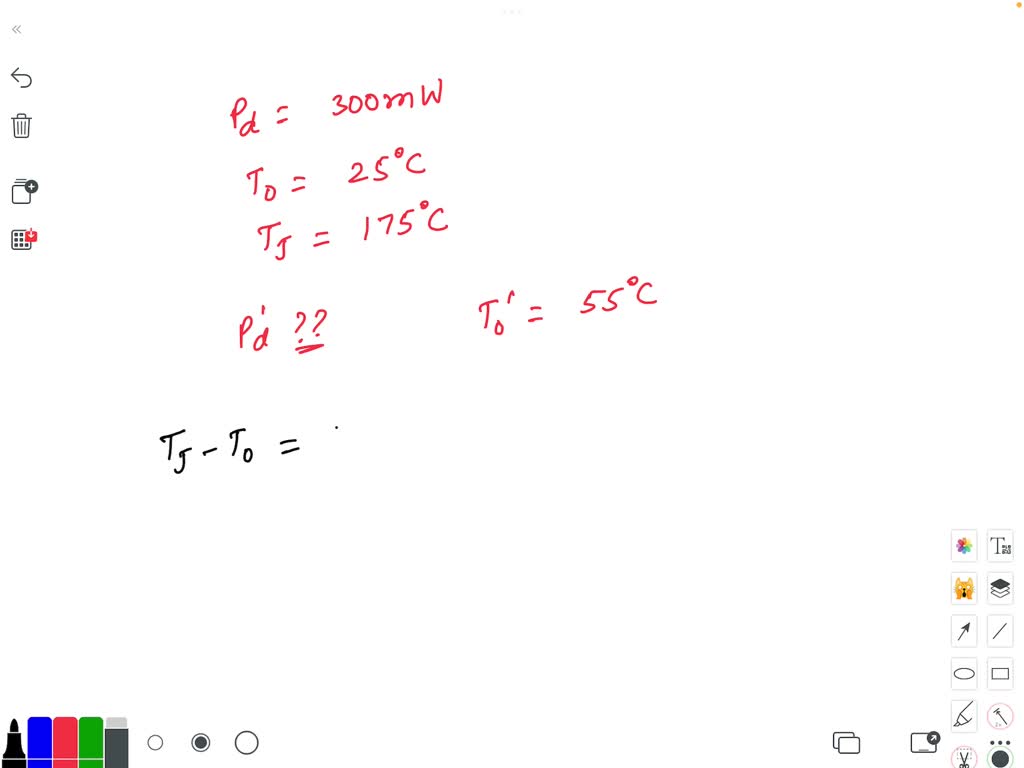 Pd = 300mW
T0 = 25°C
TJ = 175°C
Pd' ?? T0' = 55°C
TJ - T0 =